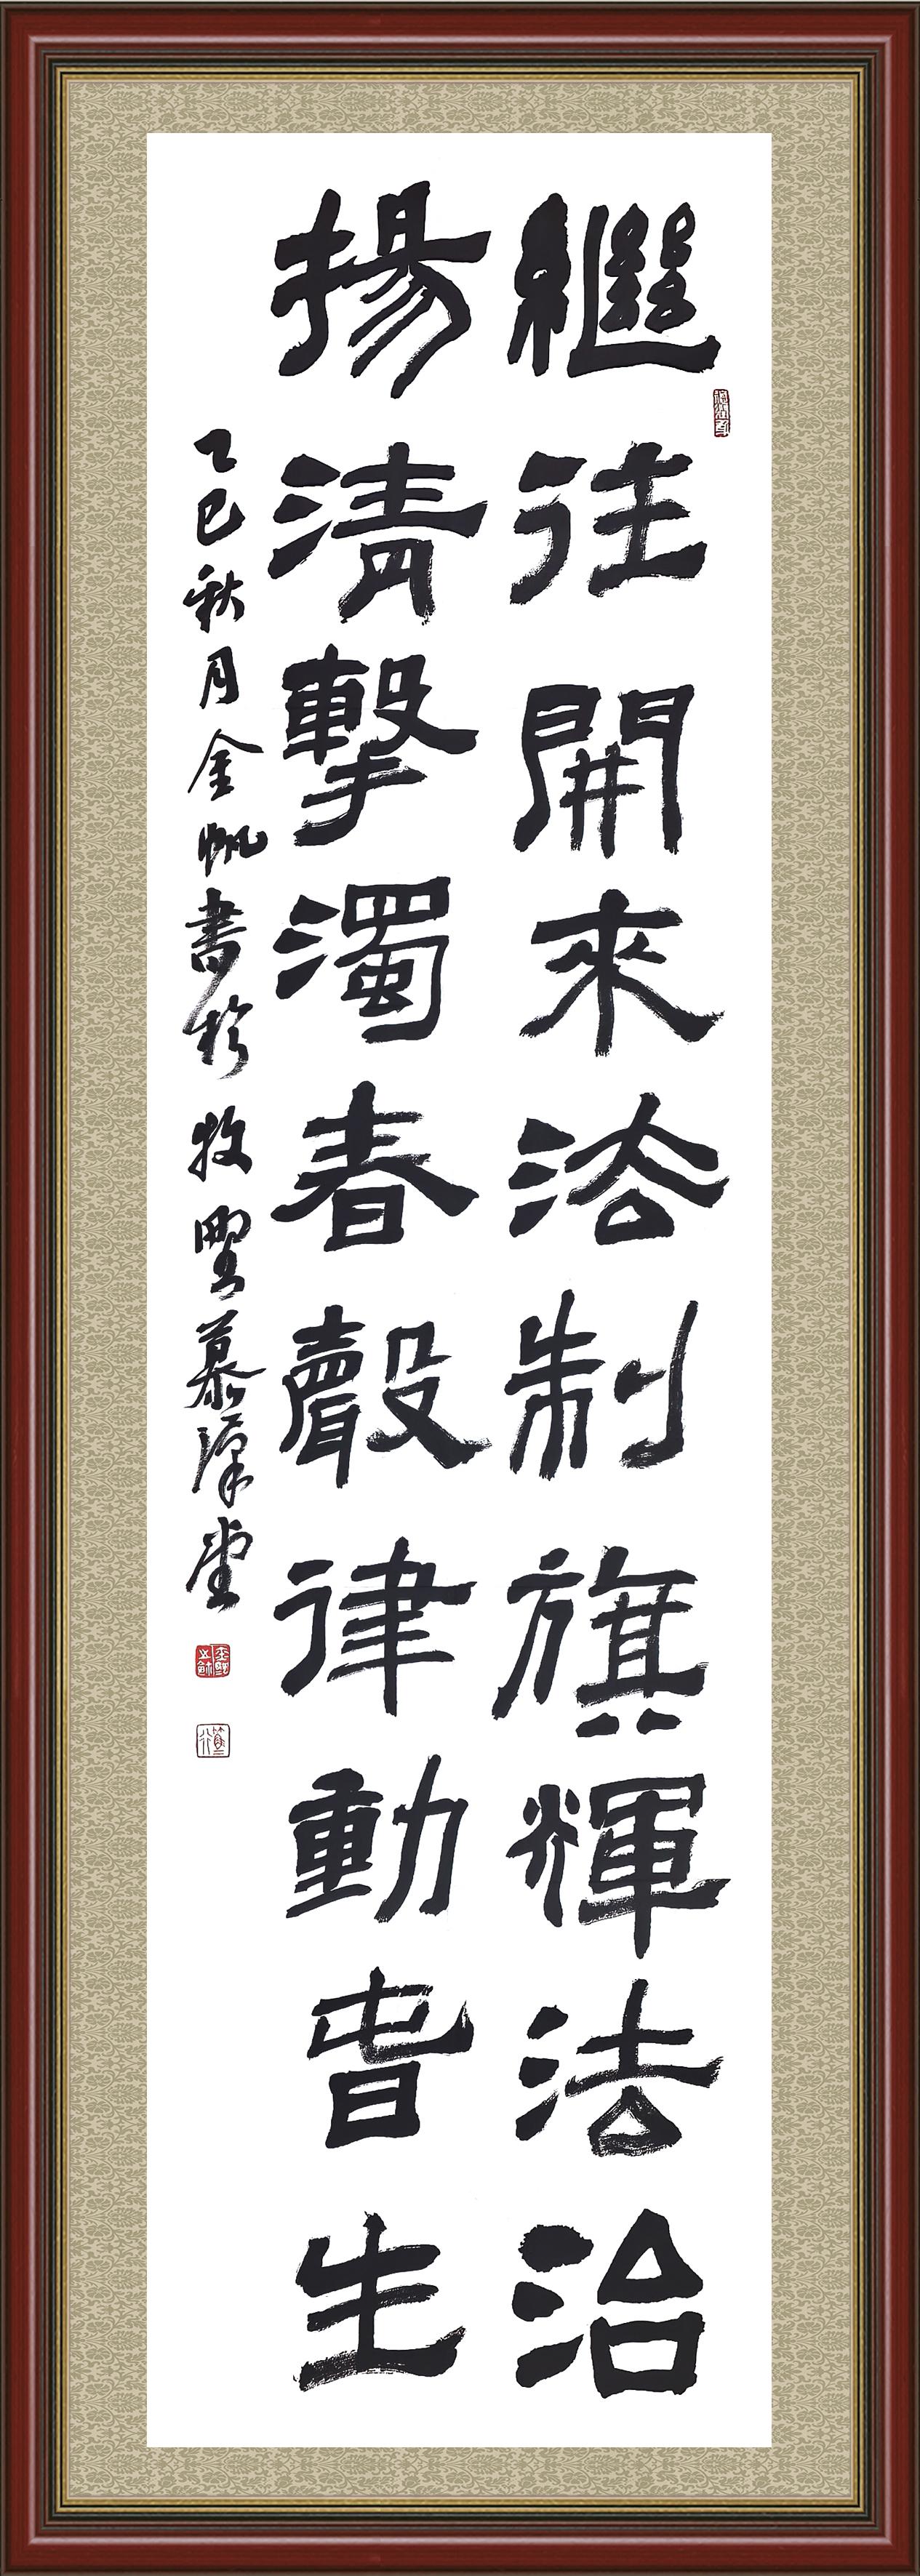 繼往開來法制旗輝法治
揚清擊濁春聲律動旾生
乙巳秋月金帆書於牧野慕堂